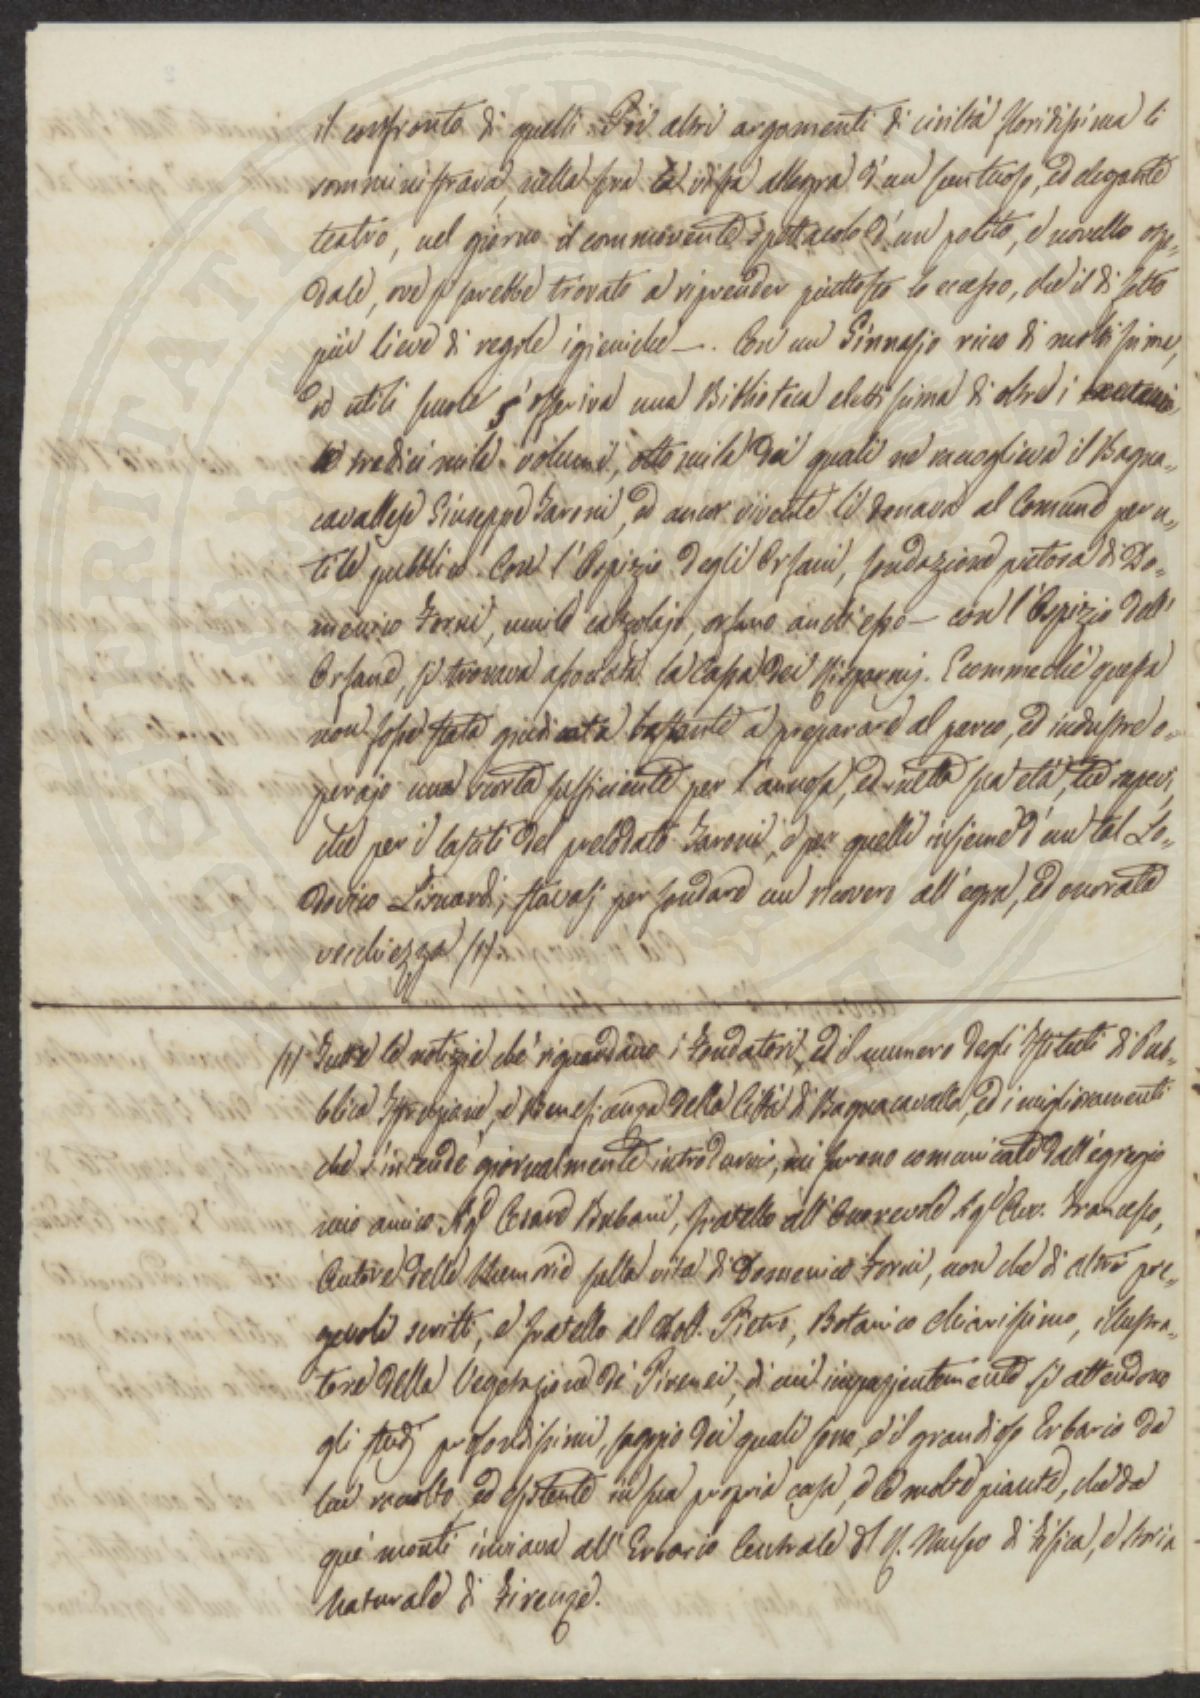 il confronto di quelli. Poi altri argomenti di civiltà floridissima ti
somministrava, nella sera la vista allegra d'un suntuoso, ed elegante
teatro, nel giorno il commovente spettacolo d'un polito, e novello ospe-
dale, ove si sarebbe trovato a riprender piuttosto lo eccesso, che il difetto
più lieve di regole igieniche —. Con un Ginnasio ricco di moltissime,
ed utili scuole s'offeriva una Biblioteca elettissima di oltre i
tredici mila volumi, otto mila dei quali ne raccoglieva il Bagna-
cavallese Giuseppe Taroni, ed ancor vivente li donava al Comune per u-
tile pubblico. Con l'Ospizio degli Orfani, fondazione pietosa di Do-
menico Forni, umile calzolajo, orfano anch'esso — con l'Ospizio dell'
Orfane, si trovava associata la Cassa dei Risparmj. E comecchè questa
non fosse stata giudicata bastante a preparare al parco, ed industre o-
perajo una scorta sufficiente per l'annosa, ed inetta sua età,
che per i lasciti del prelodato Taroni, e per quelli insieme d'un tal Lo-
dovico Lisuardi, stavasi per fondare un ricovero all'egra, ed onorata
vecchiezza (1).
(1) Tutte le notizie che riguardano i Fondatori, ed il numero degli Istituti di Pub-
blica Istruzione, e Beneficenza della Città di Bagnacavallo, ed i miglioramenti
che s'intende giornalmente introdurvi, mi furono comunicate dall'egregio
mio amico Sigr. Cesare Bubani, fratello all'Onorevole Sigr. Avv. Francesco,
Autore delle Memorie sulla vita di Domenico Forni, non che di altri pre-
gevoli scritti, e fratello al Dott. Pietro, Botanico chiarissimo, illustra-
tore della Vegetazione de' Pirenei, di cui impazientemente si attendono
gli studj profondissimi, saggio dei quali sono, e il grandioso Erbario da
lui raccolto ed esistente in sua propria casa, e le molte piante, che da
que' monti inviava all'Erbario Centrale del R. Museo di Fisica, e Storia
Naturale di Firenze.